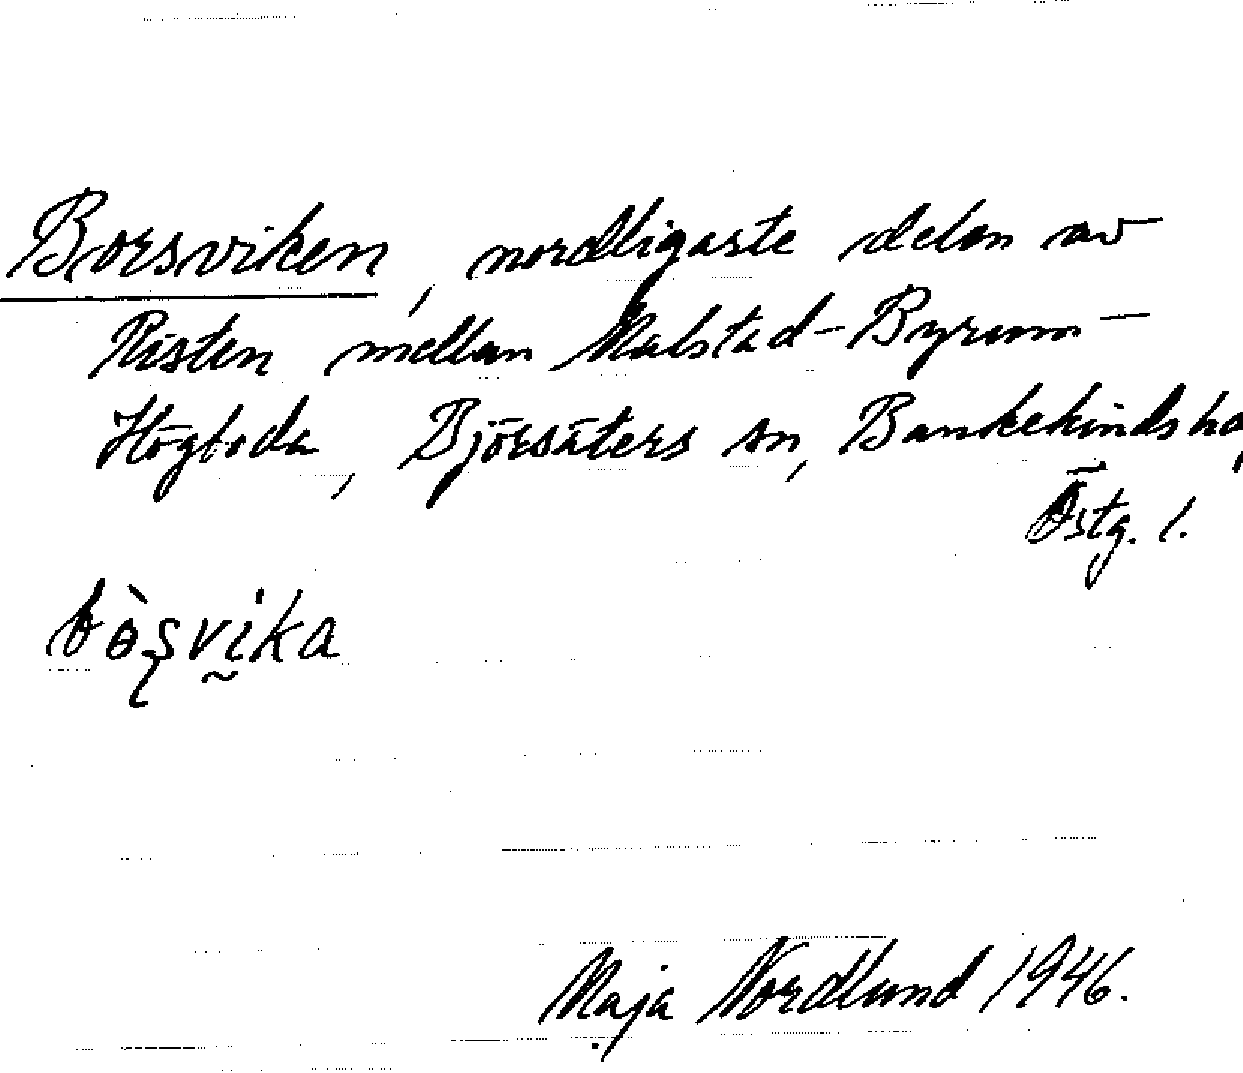 Borsviken, nordligaste delen av
Risten mellan Malstad-Byrum-
Högtoda, Björsäters sn, Bankekinds hd,
Östg. l.
bòșvika
Maja Nordlund 1946.